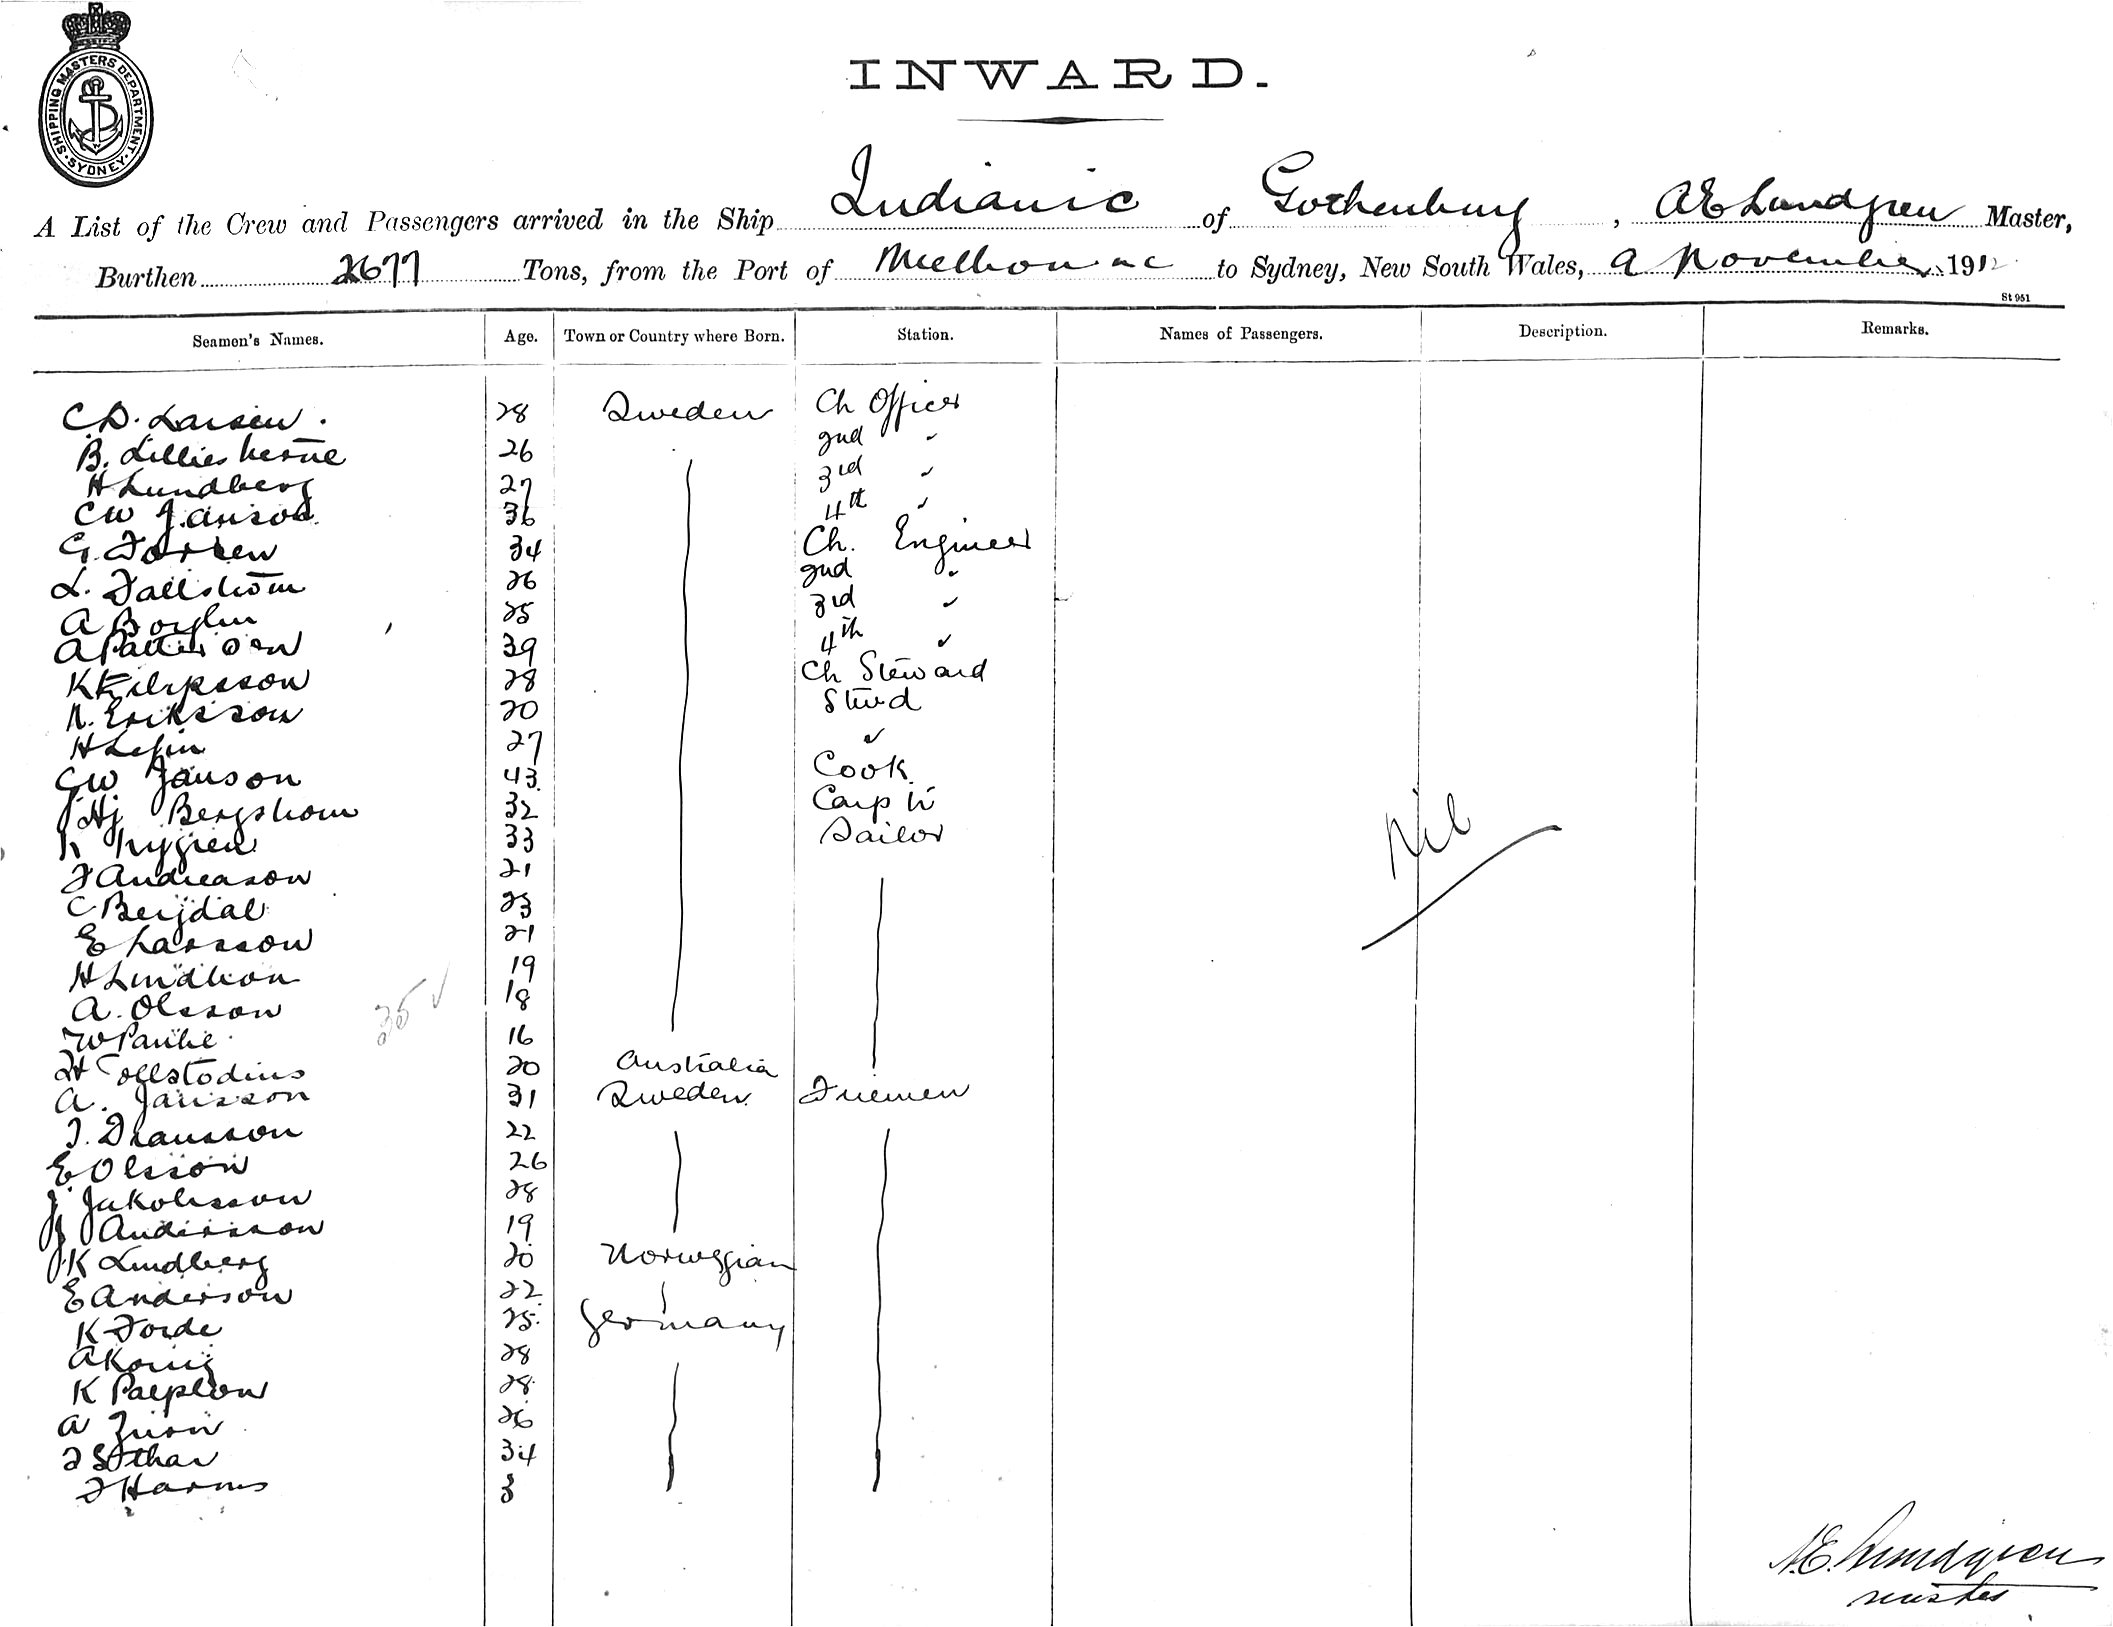 SHIPPING MASTERS DEPARTMENT. SYDNEY
INWARD.
A List of the Crew and Passengers arrived in the Ship Indianic of Gothenburg, AE Lundgren Master,
Burthen 2677 Tons, from the Port of Melbourne to Sydney, New South Wales, 9 November 1912
St 951
Seamen's Names. Age. Town or Country where Born. Station. Names of Passengers. Description. Remarks.
C.D. Larsen. 28 Sweden Ch Officer
B. 26 2nd "
H Lundberg 27 3rd "
CW Janson 36 4th "
G. 34 Ch. Engineer
L. Fallstrom 26 2nd "
A 25 3rd "
A Patterson 39 4th "
K 28 Ch Steward
N. Eriksson 20 Stwd
H 27 "
CW Janson 43 Cook
Hj Bergstrom 32 Carp tr
K Nygren 33 Sailor
F Andreason 21
C Bergdal 23
E Larsson 21
H 19
A. Olsson 18
W 16
H 20 Australia
A. Jansson 31 Sweden Firemen
22
E Olsson 26
J Jakobsson 28
J Andersson 19
K Lindberg 20 Norwegian
E Anderson 22
K Forde 25 Germany
A Konig 28
K 28
A 26
F 34
F Harms 3
35 ✓
Nil
A.E. Lundgren
master